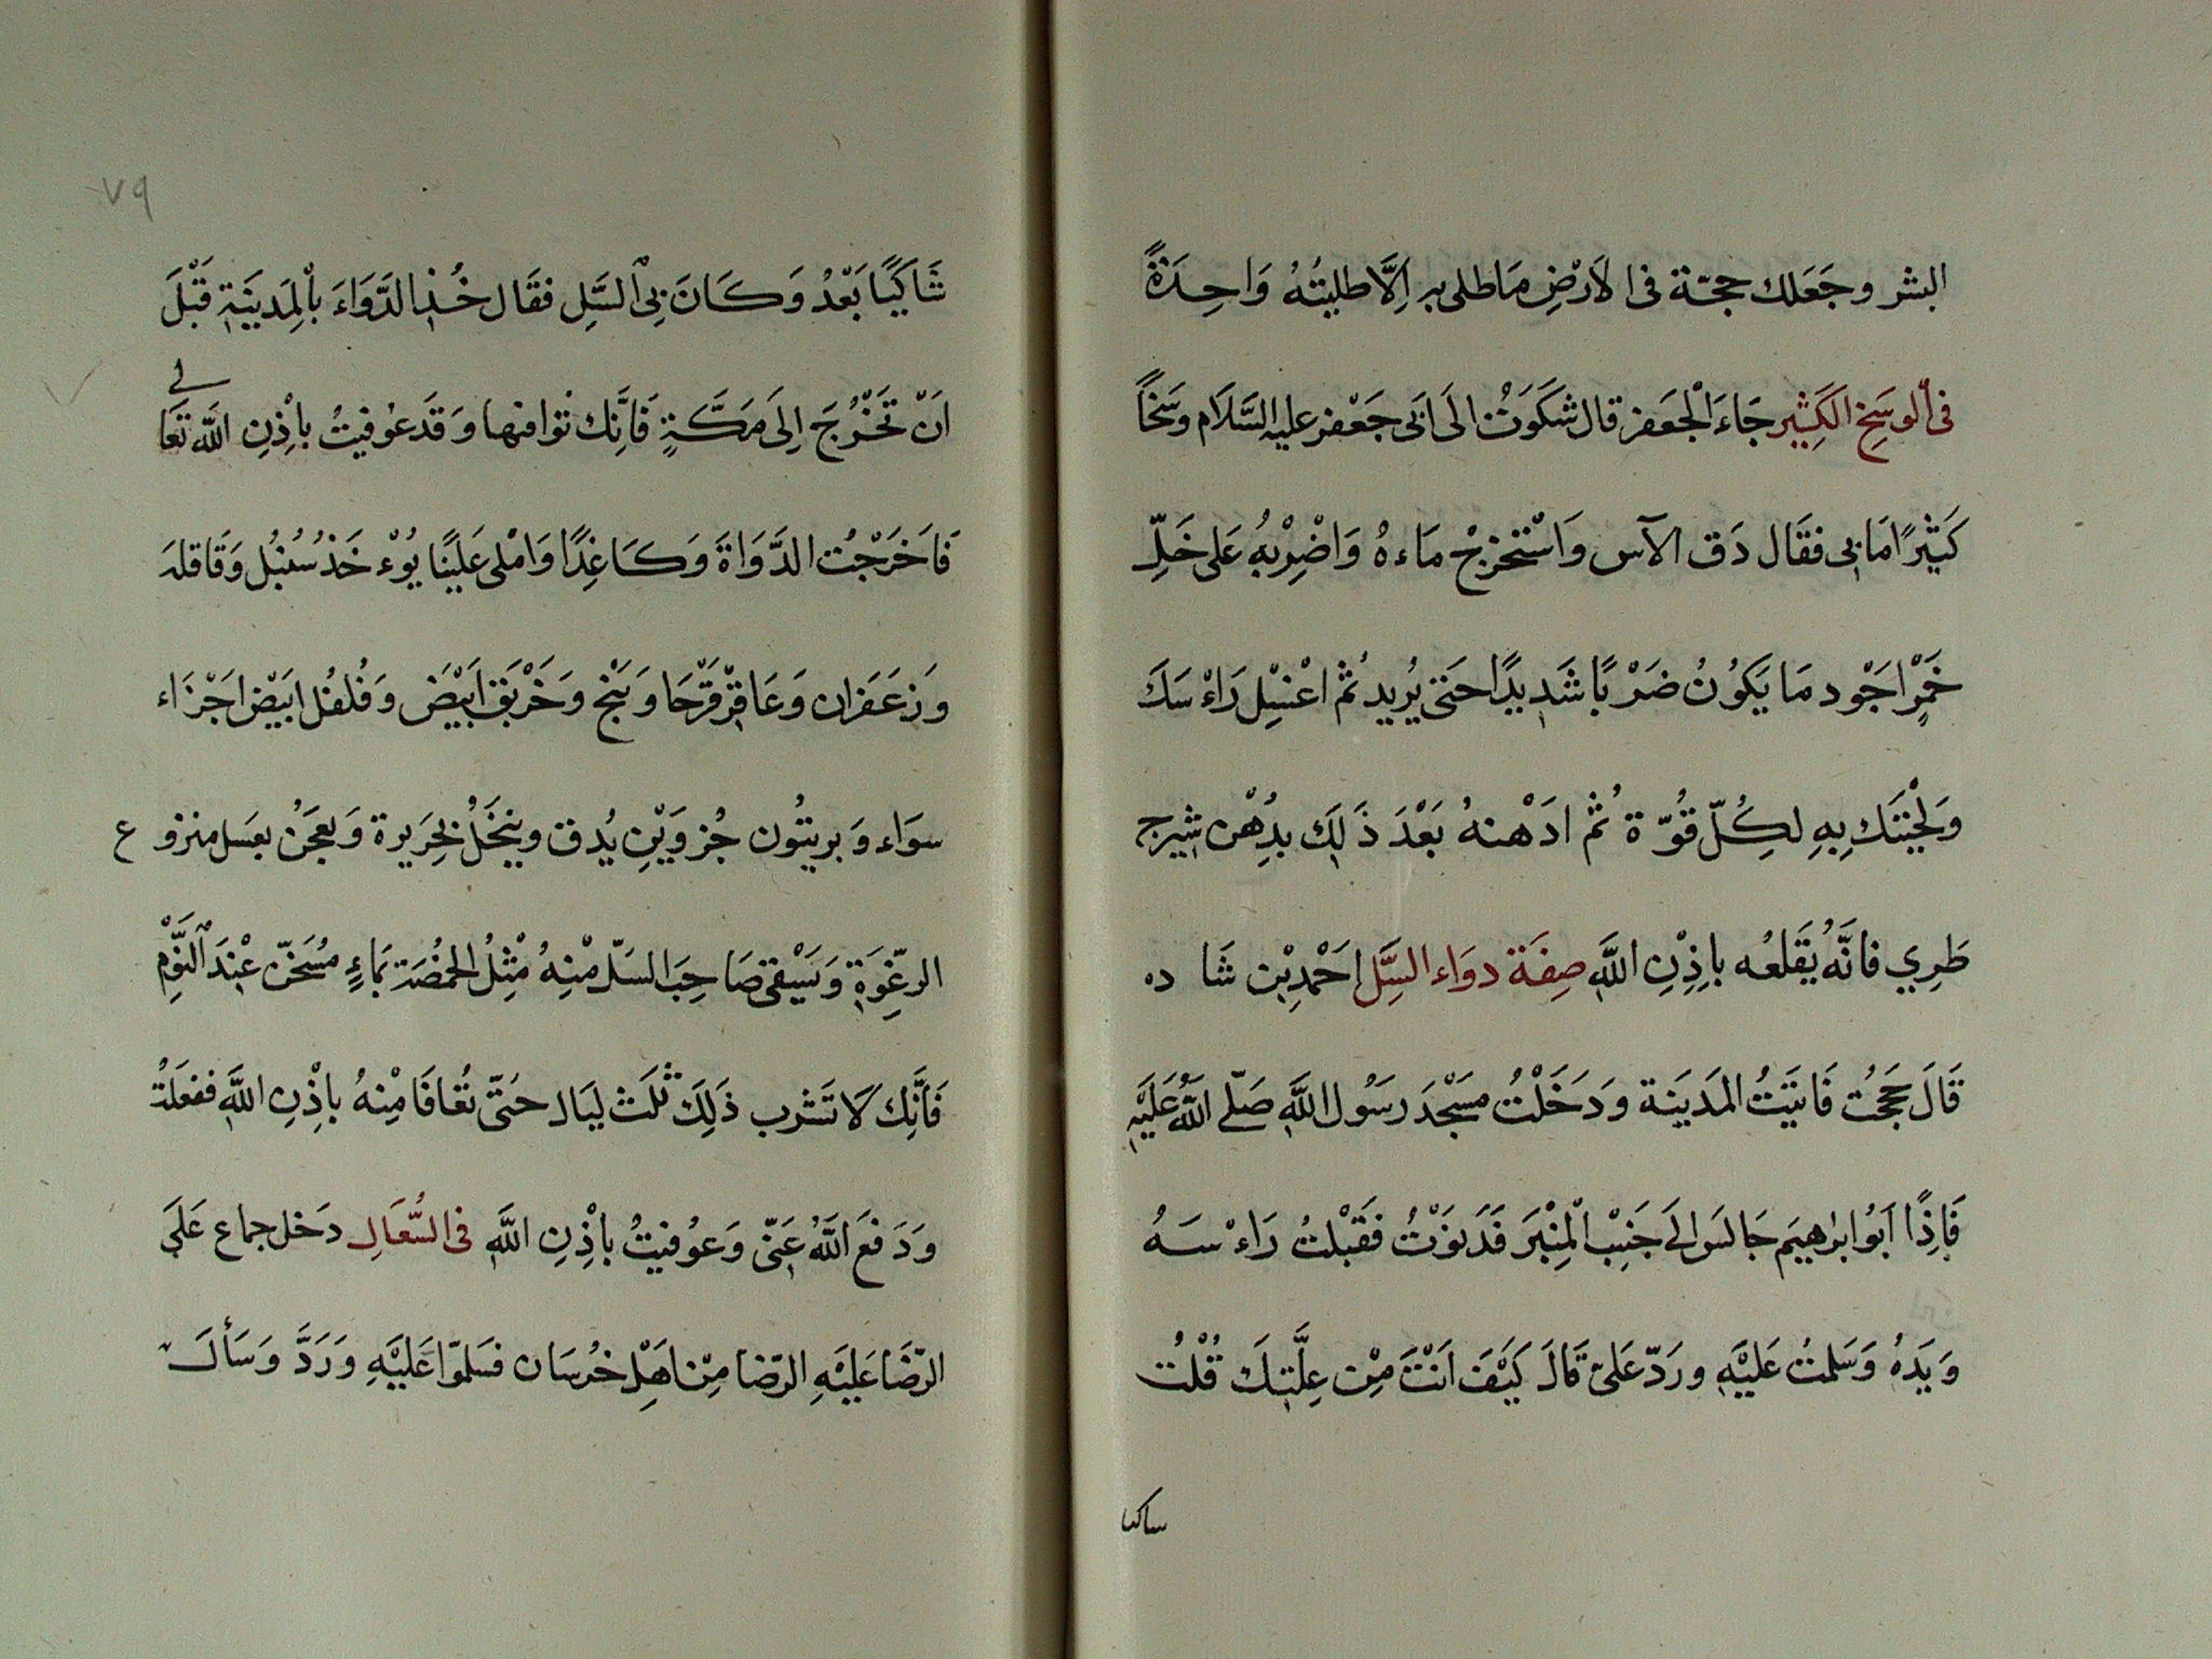 البشر وجَعَلك حجّة فى الاَرْضِ مَاطلى به اِلَّا طليتُهُ وَاحِدَةً
فى ألوسَخِ الكَثِيْر جَاءَ الْجَعَفر قال شكَوَتُ الَى اَبى جَعْفر عليه السَّلَام وسَخاً
كَثيْرًا مَا بى فقَال دَق الآس وَاسْتخرجْ مَاءهُ وَاضْرِبْهُ عَلى خَلِّ
خَمْرٍ اجَوْد مَا يَكوُنُ ضَرْبًا شَدِيدًا حتى يُريد ثُمْ اغْسِل رَاءْسَكَ
وَلِحْيتَك بِهِ لكِلّ قُوّة ثُمْ ادَهْنهُ بَعْدَ ذَلِكَ بدُهْن شيرج
طَرِي فانَّهُ يَقلعُه باِذِنِ اللَّهِ صِفَة دوَاء السَّلِ احَمْدِبْن شَا ده
قَالَ حَججْت فَاتيَتُ المَديَنة وَدَخَلْتُ مسَجْدَ رَسُول اللَّهِ صَلّے اللَّهُ عَليَهِ
فَاِذًا اَبوُ ابراهيَم جَالسَ الَى جَنبْ الْمنِبْرَ فَدَنوَتْ فقَبْلتُ رَاءْسَهُ
وَيَدهُ وَسَلمتُ عَليْهِ ورَدّ عَلىّ قَالَ كَيْفَ اَنْتَ مِنْ عِلَّتِكَ قُلْت
ساكيا
٧٩
شَاكيًا بَعْدُ وَكَانَ بىِ السَّلِ فقَال خُذ الدَّوَاءَ باْلمِدَينَةِ قَبْلَ
اَنْ تَخْرُجَ اِلَى مَكَّةٍ فَانَّك توَافيها وَقَدعُوفيتُ باِذْنِ اللَّه تعَالے
فَاخَرَجْت الدَّوَاةَ وَكَاغِذًا وَامْلى عَليْنَا يُوءْخَذ سُنبُل وَقَاقلهَ
وَزعَفَران وَعَاقِرْقَرْحَا وَبَنْج وَخَرْبَق ابَيْضَ وَفُلفُل ابَيْض اجَزَاء
سوَاء وَ بريتُون جُزوَيْنِ يُدق وينخَلُ بحَرَيرة وَيعجَنُ بعَسل منزوع
الرغِّوَةِ وَيَسْقى صَاحِبَ السَلّ منِهُ مْثِلُ الحمْصَة بمَاءٍ مُسَخنّ عْندَ النَّوْمِ
فَانَّك لَا تَشْرب ذَلِكَ ثلَث ليَال حتىّ تُعافَا مْنِهُ باِذْنِ اللَّهِ ففعَلتْ
وَدَفعَ اللَّهُ عَنىّ وَعوُفيتُ باِذْنِ اللَّهِ فى السُّعَالِ دَخل جماع عَلَى
الرّضَا عَليَهِ الرّضا مِنْ اهَلْ خُرسَان فسَلموّا عَليْهِ وَرَدَّ وَسَألَ